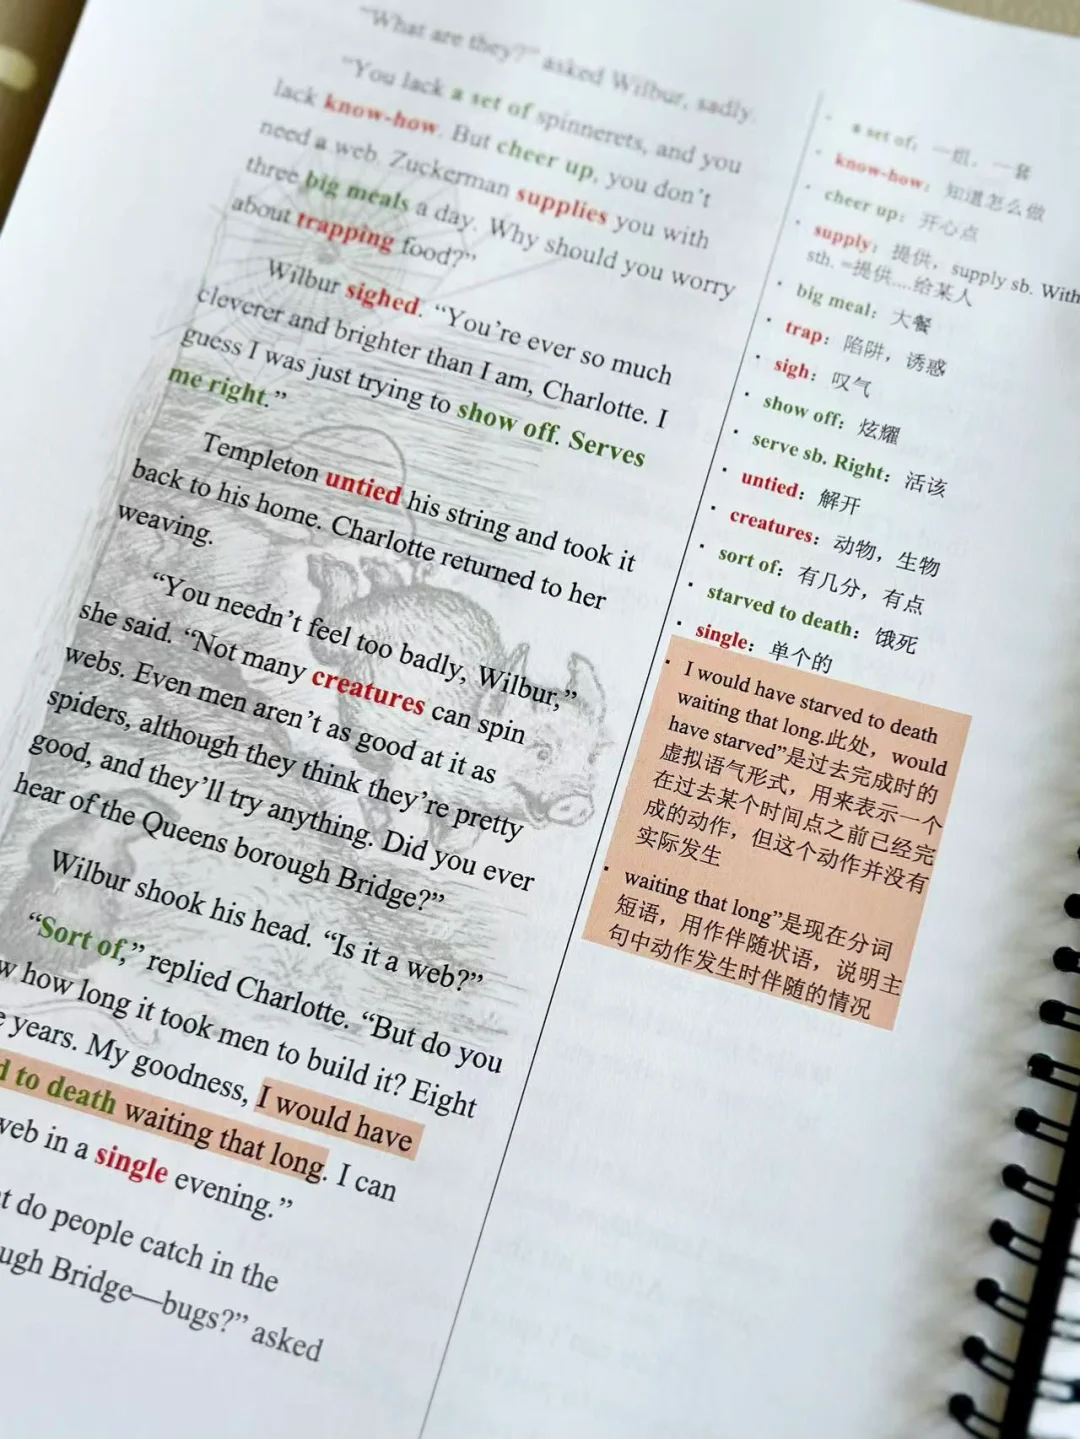 "What are they?" asked Wilbur, sadly.
"You lack a set of spinnerets, and you
lack know-how. But cheer up, you don't
need a web. Zuckerman supplies you with
three big meals a day. Why should you worry
about trapping food?"
Wilbur sighed. "You're ever so much
cleverer and brighter than I am, Charlotte. I
guess I was just trying to show off. Serves
me right."
Templeton untied his string and took it
back to his home. Charlotte returned to her
weaving.
"You needn't feel too badly, Wilbur,"
she said. "Not many creatures can spin
webs. Even men aren't as good at it as
spiders, although they think they're pretty
good, and they'll try anything. Did you ever
hear of the Queens borough Bridge?"
Wilbur shook his head. "Is it a web?"
"Sort of," replied Charlotte. "But do you
w how long it took men to build it? Eight
e years. My goodness, I would have
d to death waiting that long. I can
web in a single evening."
t do people catch in the
ugh Bridge—bugs?" asked
a set of：一组，一套
know-how：知道怎么做
cheer up：开心点
supply：提供，supply sb. With
sth. =提供....给某人
big meal：大餐
trap：陷阱，诱惑
sigh：叹气
show off：炫耀
serve sb. Right：活该
untied：解开
creatures：动物，生物
sort of：有几分，有点
starved to death：饿死
single：单个的
I would have starved to death
waiting that long.此处，would
have starved”是过去完成时的
虚拟语气形式，用来表示一个
在过去某个时间点之前已经完
成的动作，但这个动作并没有
实际发生
waiting that long”是现在分词
短语，用作伴随状语，说明主
句中动作发生时伴随的情况